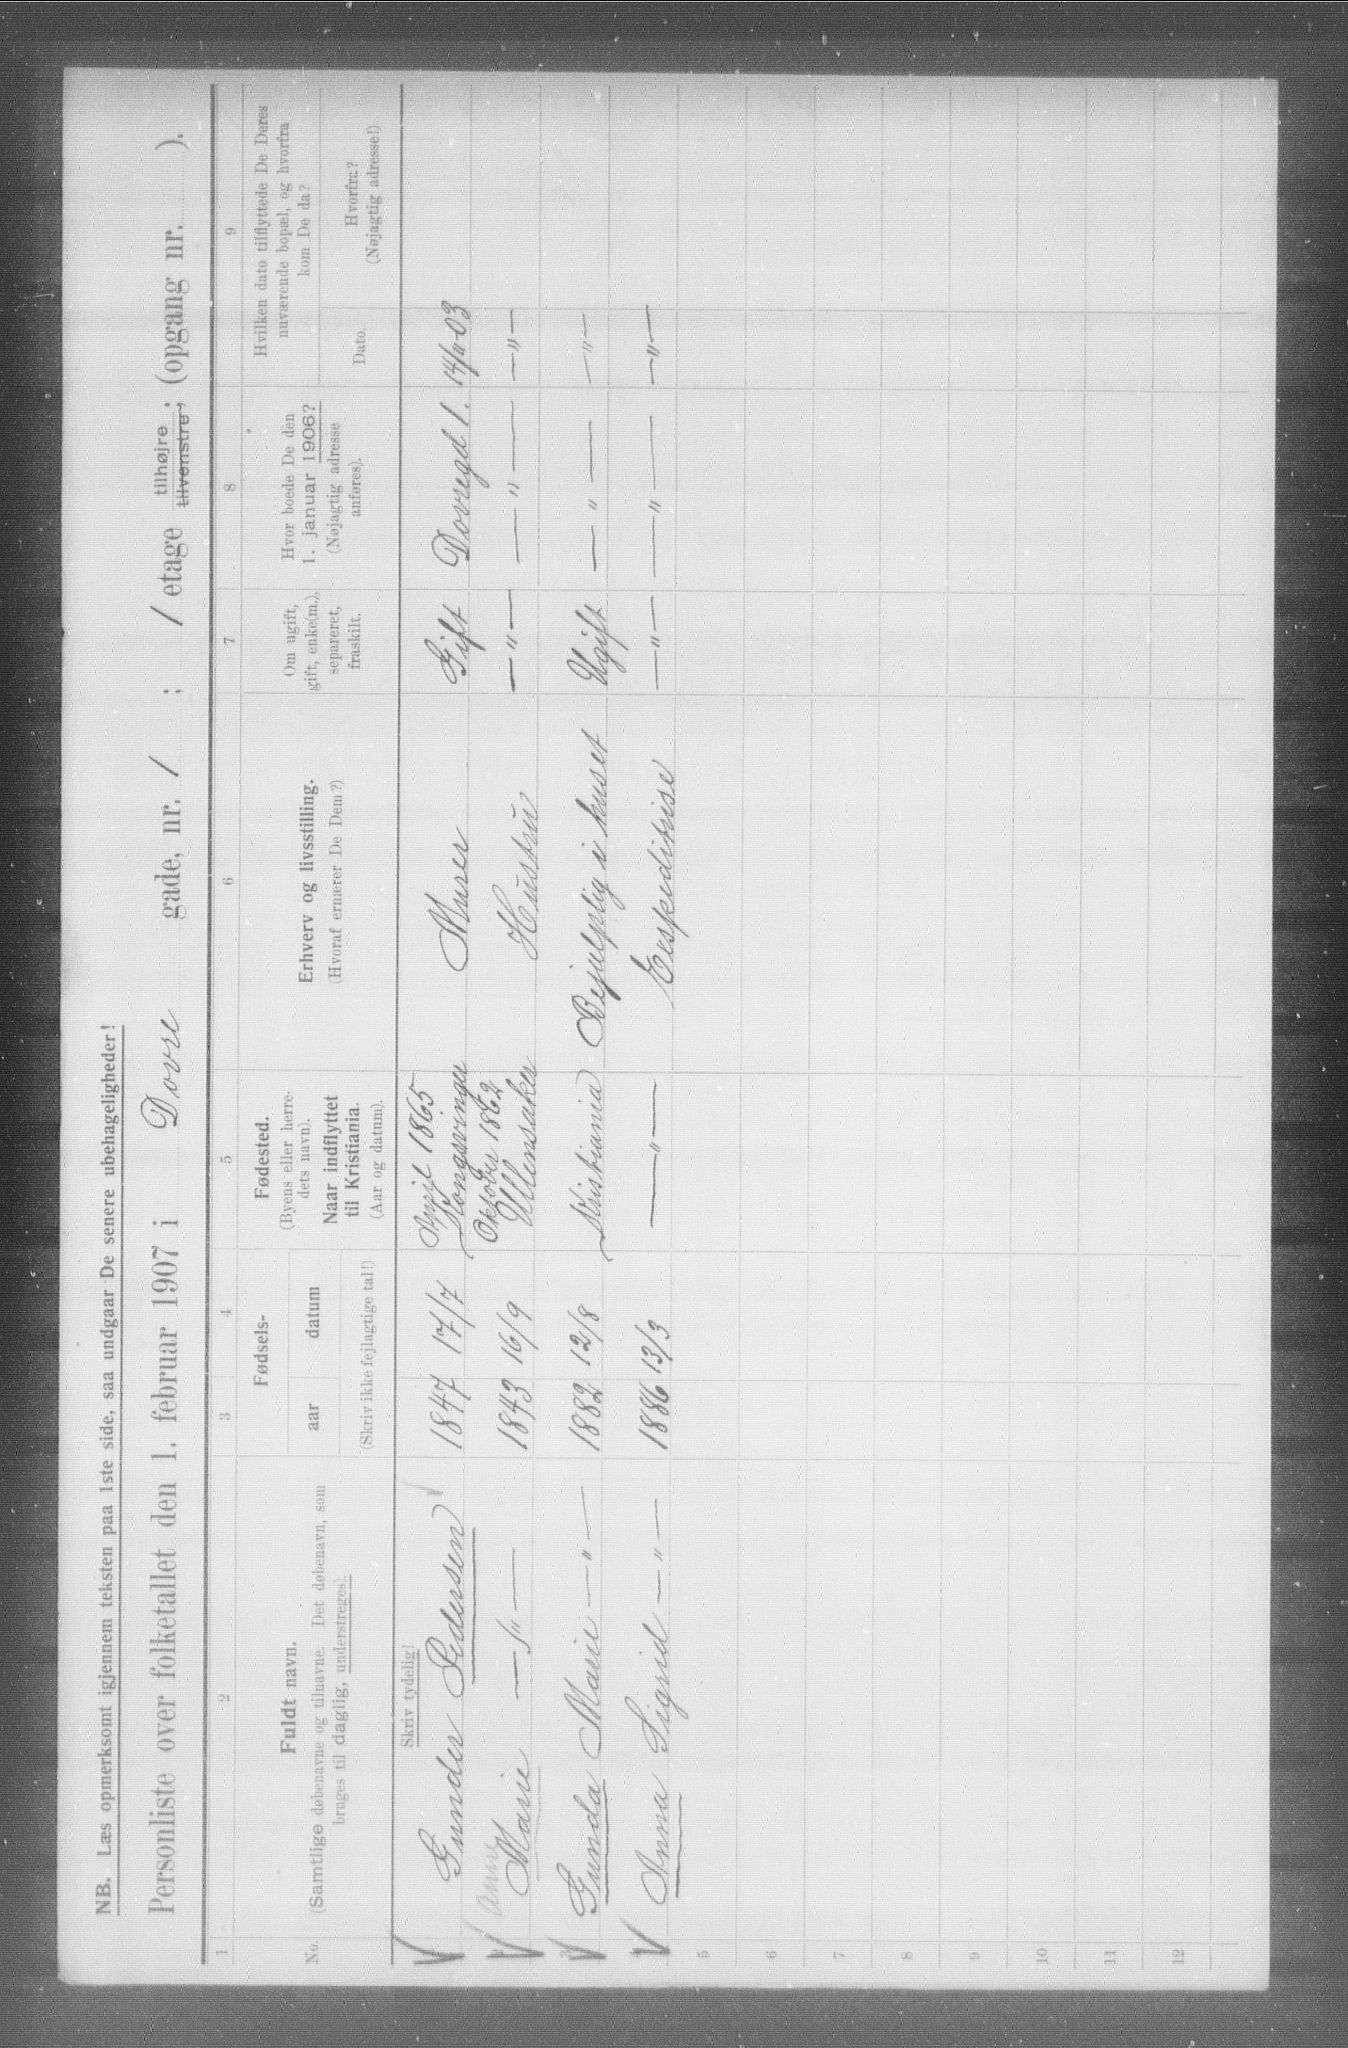 NB. Læs opmerksomt igjennem teksten paa 1ste side, saa undgaar De senere ubehageligheder!
Personliste over folketallet den 1. februar 1907 i Dovre gade, nr. 1 ; 1 etage tilhøjre tilvenstre; (opgang nr. ).
1 2 3 4 5 6 7 8 9
No.
Fuldt navn.
(Samtlige døbenavne og tilnavne. Det døbenavn, som
bruges til daglig, understreges).
Fødsels-
aar datum
(Skriv ikke fejlagtige tal!)
Fødested.
(Byens eller herre-
dets navn).
Naar indflyttet
til Kristiania.
(Aar og datum).
Erhverv og livsstilling.
(Hvoraf ernærer De Dem?)
Om ugift,
gift, enke(m.),
separeret,
fraskilt.
Hvor boede De den
1. januar 1906?
(Nøjagtig adresse
anføres).
Hvilken dato tilflyttede De Deres
nuværende bopæl, og hvorfra
kom De da?
Dato.
Hvorfra?
(Nøjagtig adresse!)
Skriv tydelig!
April 1865
Gunder Pedersen 1847 17/7 Kongsvinger Murer Gift Dovregd 1. 14/11 03
Oktober 1862
2 Anne Marie —"— 1843 16/9 Ullensaker Hustru —"— —"— —"—
3 Gunda Marie —"— 1882 12/8 Kristiania Behjælplig i huset Ugift —"— —"—
Anna Sigrid —"— 1886 13/3 —"— Ekspeditrise —"— —"— —"—
5
6
7
8
9
10
11
12